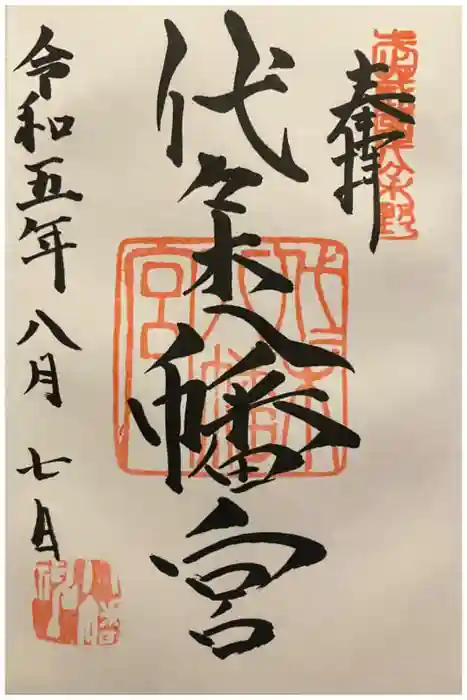 奉拝
代々木八幡宮
代々木
八幡
宮
令和五年八月七日